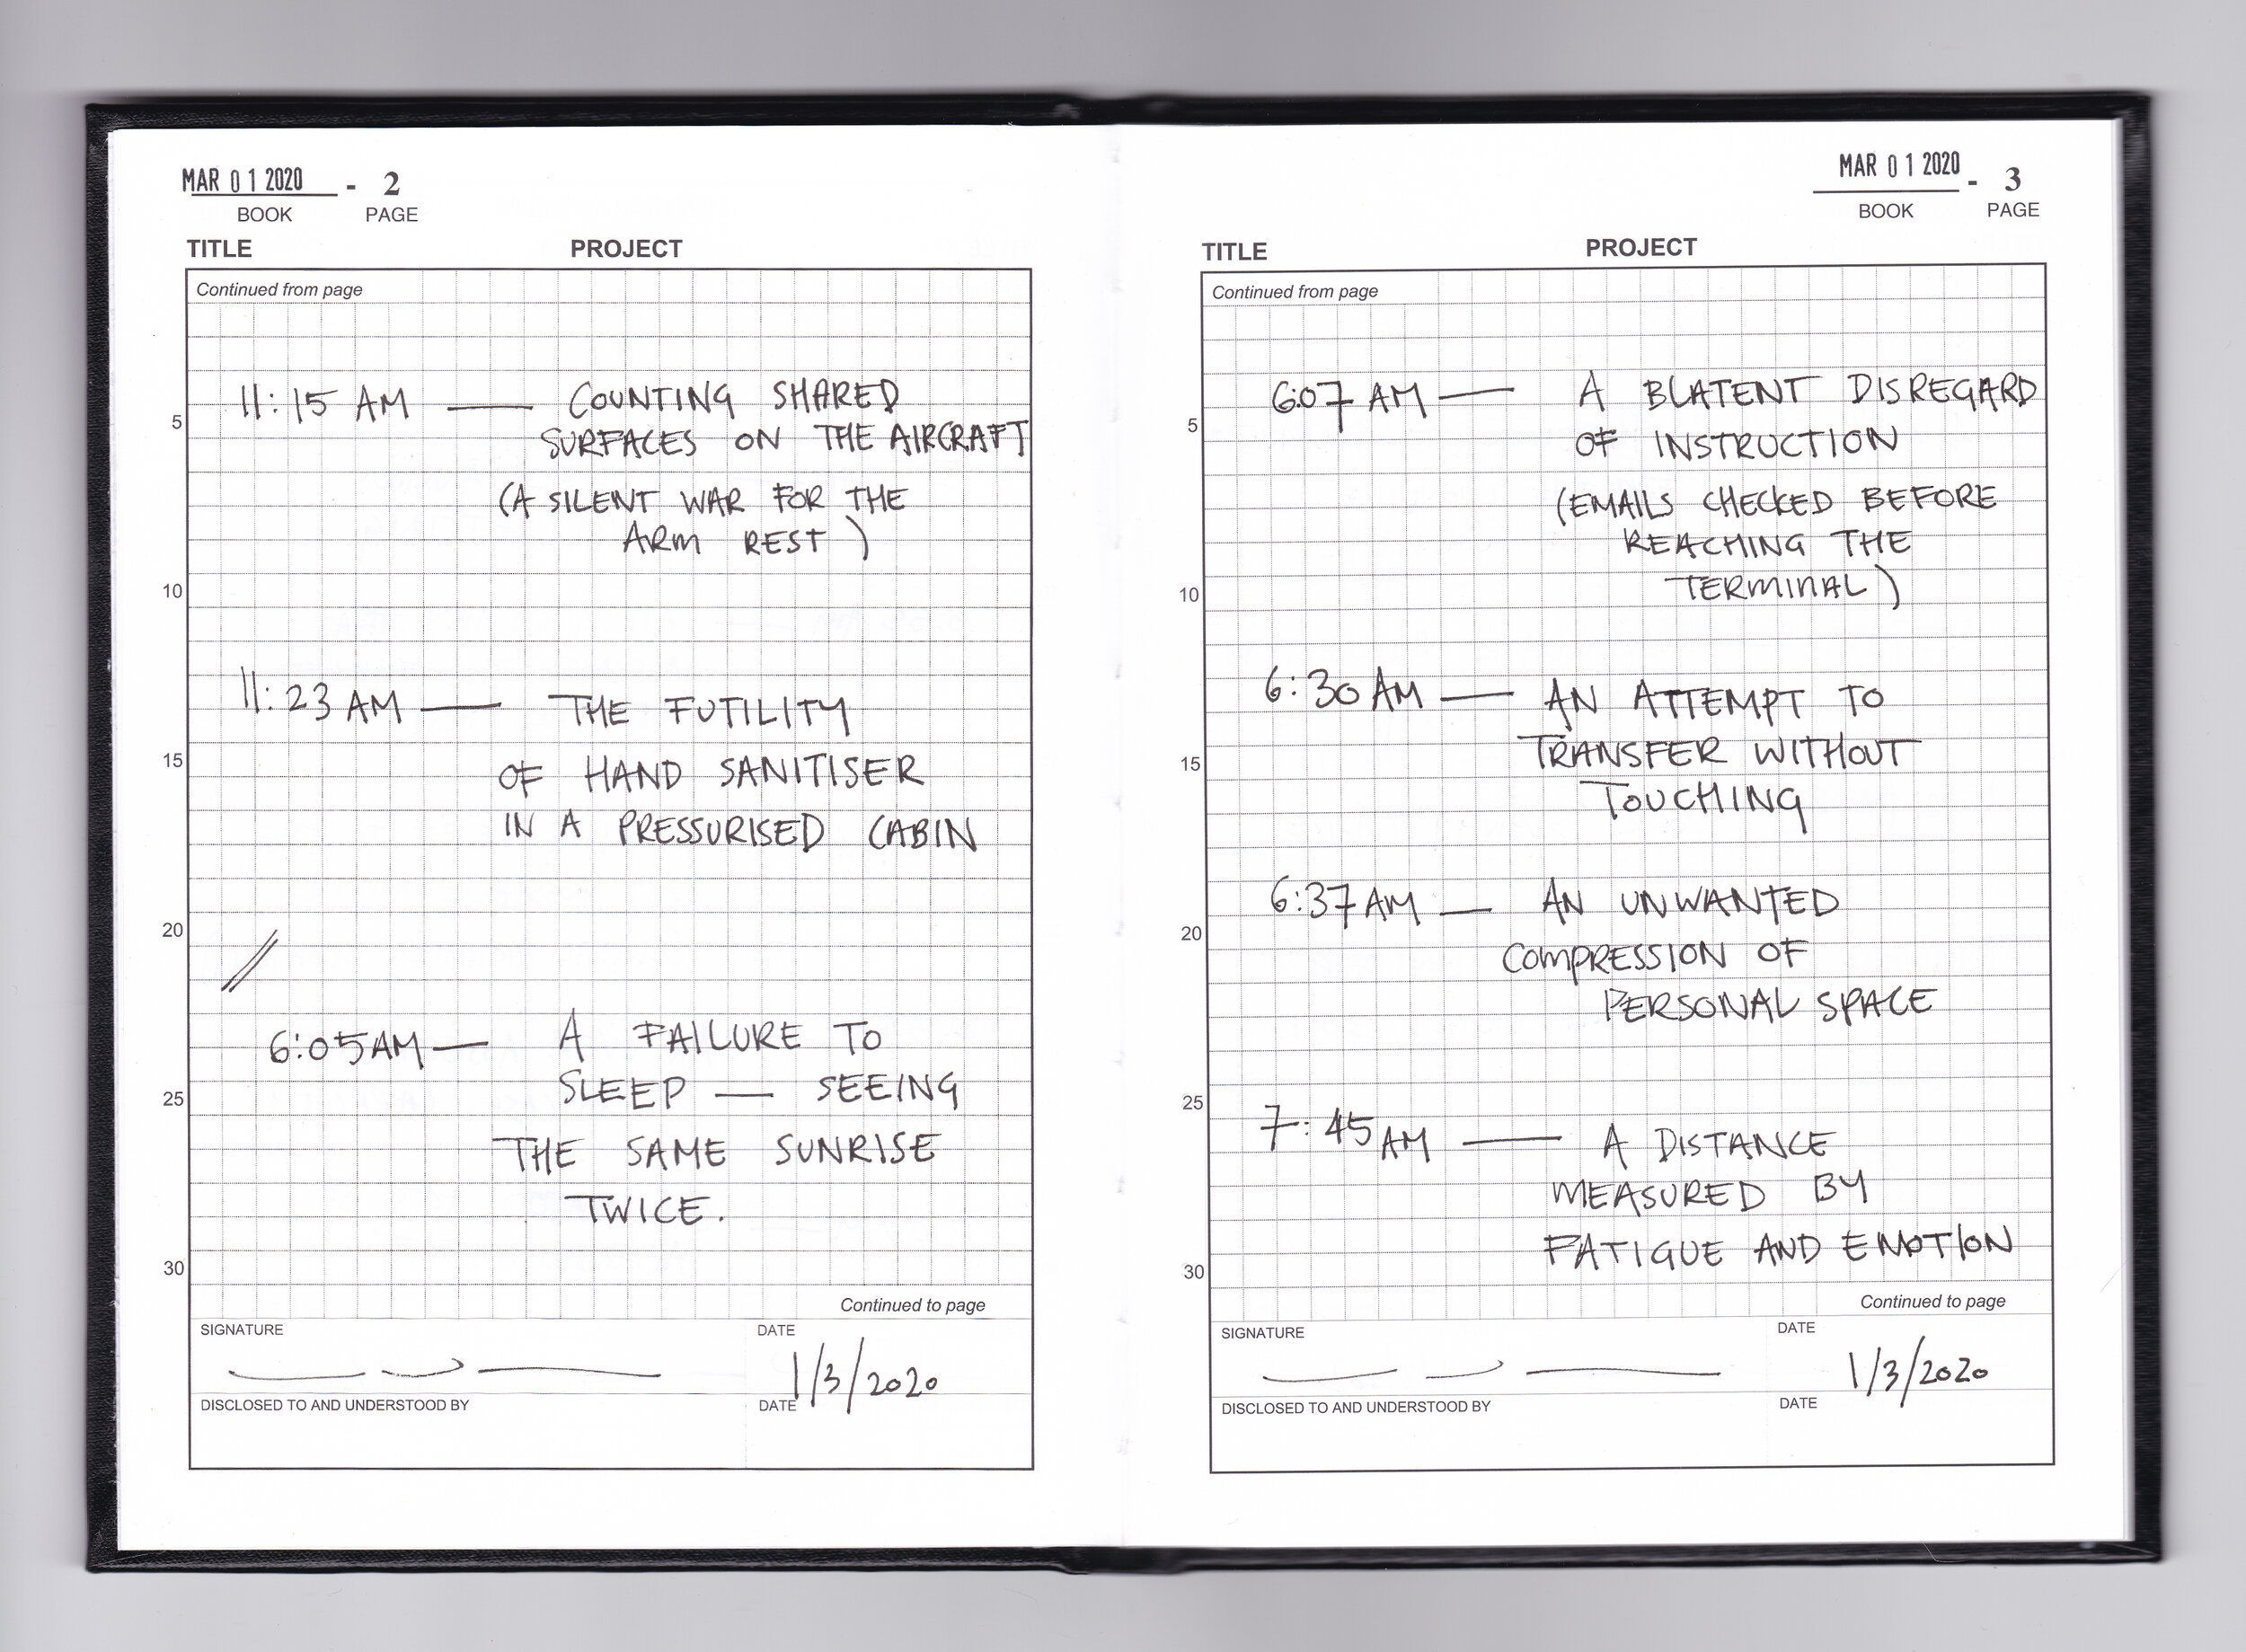 MAR 01 2020 - 2
BOOK PAGE
TITLE PROJECT
Continued from page
11:15 AM — COUNTING SHARED
5
SURFACES ON THE AIRCRAFT
(A SILENT WAR FOR THE
ARM REST)
10
11:23 AM — THE FUTILITY
15
OF HAND SANITISER
IN A PRESSURISED CABIN
20
//
6:05 AM — A FAILURE TO
25
SLEEP — SEEING
THE SAME SUNRISE
TWICE.
30
Continued to page
SIGNATURE DATE
1/3/2020
DISCLOSED TO AND UNDERSTOOD BY DATE
MAR 01 2020 - 3
BOOK PAGE
TITLE PROJECT
Continued from page
6:07 AM — A BLATENT DISREGARD
5
OF INSTRUCTION
(EMAILS CHECKED BEFORE
REACHING THE
10
TERMINAL)
6:30 AM — AN ATTEMPT TO
TRANSFER WITHOUT
15
TOUCHING
6:37 AM — AN UNWANTED
20
COMPRESSION OF
PERSONAL SPACE
25
7:45 AM — A DISTANCE
MEASURED BY
FATIGUE AND EMOTION
30
Continued to page
SIGNATURE DATE
1/3/2020
DISCLOSED TO AND UNDERSTOOD BY DATE